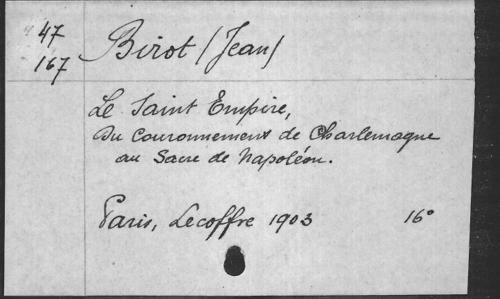 47
167
Birot (Jean)
Le Saint Empire,
Du Couronnement de Charlemagne
au Sacre de Napoléon.
Paris, Lecoffre 1903 16°